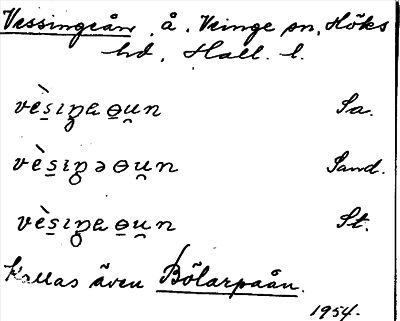 Vessingeån, å. Veinge sn, Höks
hd, Hall. l.
vèsıŋa ɵu̯n Sa.
vèsıŋə ɵu̯n Sand.
vèsıŋa ɵu̯n St.
Kallas även Bölarpaån.
1954.